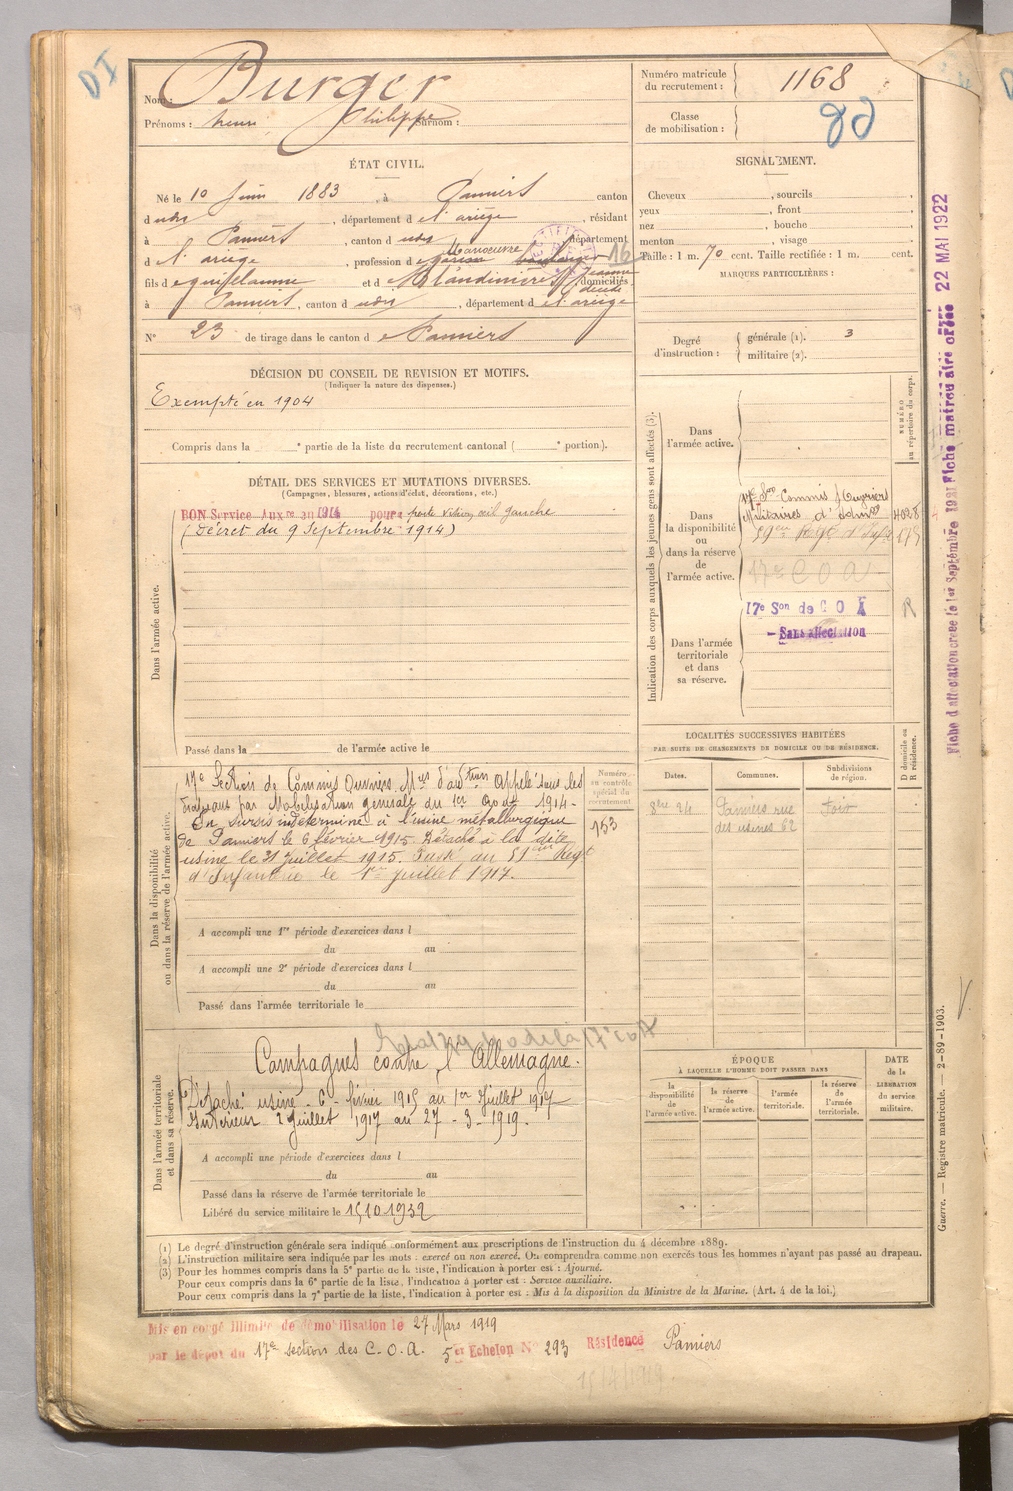 DI
Nom : Burger
Prénoms : henri Philippe Surnom :
Numéro matricule du recrutement : 1168
Classe de mobilisation :
ÉTAT CIVIL.
Né le 10 Juin 1883, à Pamiers canton
d udis, département d e l'ariège, résidant
à Pamiers, canton d udis, département
d e l'ariège, profession d e garçon boulanger Manoeuvre 16
fils d e guillaume et d e Blandinière Jeanne décédée domiciliés
à Pamiers, canton d udis, département d e l'ariège
N° 23 de tirage dans le canton d e Pamiers
SIGNALEMENT.
Cheveux , sourcils ,
yeux , front ,
nez , bouche ,
menton , visage
Taille : 1 m. 70 cent. Taille rectifiée : 1 m. cent.
MARQUES PARTICULIÈRES :
Degré d'instruction : générale (1). 3
militaire (2).
DÉCISION DU CONSEIL DE REVISION ET MOTIFS.
(Indiquer la nature des dispenses.)
Exempté en 1904
Compris dans la e partie de la liste du recrutement cantonal ( e portion).
DÉTAIL DES SERVICES ET MUTATIONS DIVERSES.
(Campagnes, blessures, actions d'éclat, décorations, etc.)
Dans l'armée active.
BON Service Aux.re au 1914 pour perte vision œil gauche
(Décret du 9 Septembre 1914)
Passé dans la de l'armée active le
Indication des corps auxquels les jeunes gens sont affectés (3).
NUMÉRO au répertoire du corps.
Dans l'armée active.
Dans la disponibilité ou dans la réserve de l'armée active.
17e Son Commis Ouvriers
Militaires d'admon
59eme Regt d'Infie
17e C O A
Dans l'armée territoriale et dans sa réserve.
17e Son de C O A
Sans affectation
R
Fiche d'affectation créée le 1er Septembre 1921
Fiche matriculaire créée 22 MAI 1922
Dans la disponibilité ou dans la réserve de l'armée active.
17e Section de Commis Ouvriers Mres d'adtion Appelé sous les
drapeaux par Mobilisation générale du 1er Août 1914-
En sursis indéterminé à l'usine métallurgique
de Pamiers le 6 février 1915. Détaché à la dite
usine le 31 Juillet 1915. Passé au 59eme Regt
d'Infanterie le 1er Juillet 1917.
Numéro au contrôle spécial du recrutement
153
A accompli une 1re période d'exercices dans l
du au
A accompli une 2e période d'exercices dans l
du au
Passé dans l'armée territoriale le
LOCALITÉS SUCCESSIVES HABITÉES
PAR SUITE DE CHANGEMENTS DE DOMICILE OU DE RÉSIDENCE.
Dates. Communes. Subdivisions de région. D domicile ou R résidence.
8bre 24 Pamiers rue des usines 62 Foix
Dans l'armée territoriale et dans sa réserve.
Campagnes contre l'Allemagne.
Détaché usine - 6 - février 1915 au 1er Juillet 1917
Intérieur 2 Juillet 1917 au 27 - 3 - 1919.
A accompli une période d'exercices dans l
du au
Passé dans la réserve de l'armée territoriale le
Libéré du service militaire le 15.10.1932
ÉPOQUE
À LAQUELLE L'HOMME DOIT PASSER DANS
la disponibilité de l'armée active. la réserve de l'armée active. l'armée territoriale. la réserve de l'armée territoriale.
DATE de la LIBERATION du service militaire.
Guerre. — Registre matricule. — 2-89-1903.
(1) Le degré d'instruction générale sera indiqué conformément aux prescriptions de l'instruction du 4 décembre 1889.
(2) L'instruction militaire sera indiquée par les mots : exercé ou non exercé. On comprendra comme non exercés tous les hommes n'ayant pas passé au drapeau.
(3) Pour les hommes compris dans la 5e partie de la liste, l'indication à porter est : Ajourné.
Pour ceux compris dans la 6e partie de la liste, l'indication à porter est : Service auxiliaire.
Pour ceux compris dans la 7e partie de la liste, l'indication à porter est : Mis à la disposition du Ministre de la Marine. (Art. 4 de la loi.)
Mis en congé illimité de démobilisation le 27 Mars 1919
par le dépôt du 17e section des C.O.A. 5e Echelon N° 293 Résidence Pamiers